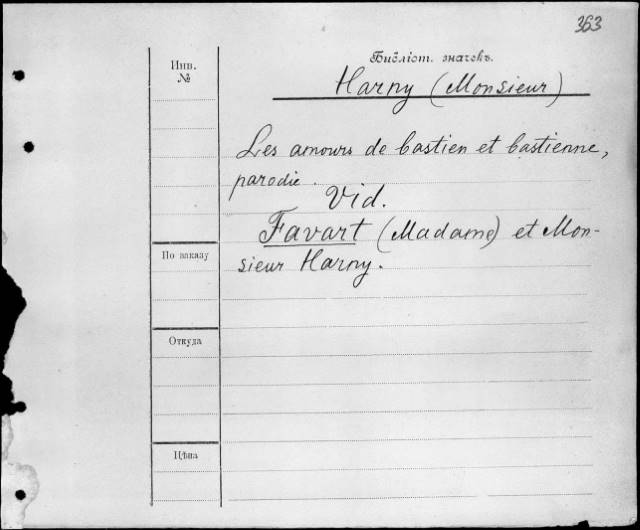 363
Инв.
№
Библіот. значекъ.
Harny (Monsieur)
Les amours de bastien et bastienne,
parodie.
Vid.
Favart (Madame) et Mon-
sieur Harny.
По заказу
Откуда
Цѣна